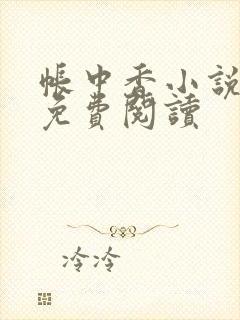 帳中香小說
免費閱讀
冷泠